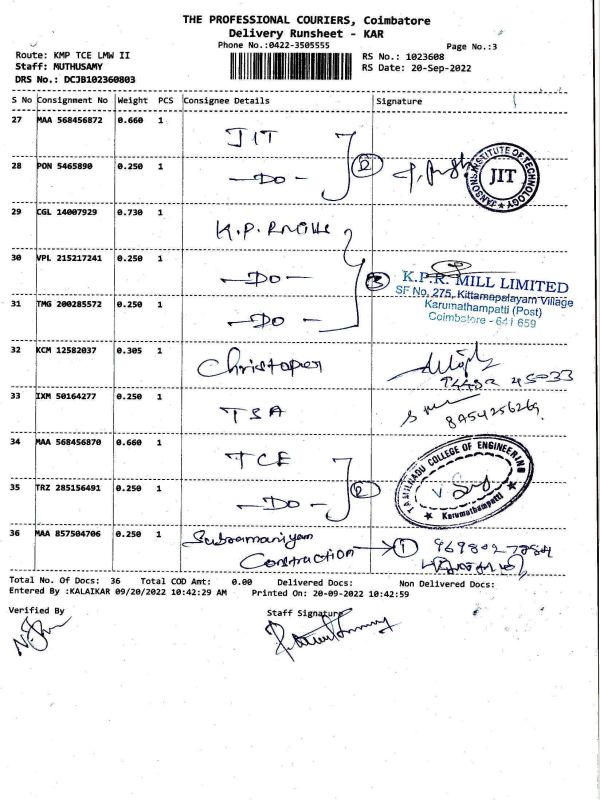 THE PROFESSIONAL COURIERS, Coimbatore
Delivery Runsheet - KAR
Phone No.:0422-3505555
Page No.:3
Route: KMP TCE LMW II
RS No.: 1023608
Staff: MUTHUSAMY
RS Date: 20-Sep-2022
DRS No.: DCJB102360803
S No Consignment No Weight PCS Consignee Details Signature
27 MAA 568456872 0.660 1 JIT
28 PON 5465890 0.250 1 -DO- 2
JANSONS INSTITUTE OF TECHNOLOGY
JIT
29 CGL 14007929 0.730 1 K.P.R Mills
30 VPL 215217241 0.250 1 -DO- 3
K.P.R. MILL LIMITED
SF No. 275, Kittampalayam Village
Karumathampatti (Post)
Coimbatore - 641 659
31 TMG 200285572 0.250 1 -DO-
32 KCM 12582037 0.305 1 Christoper
33 IXM 50164277 0.250 1 TSA
34 MAA 568456870 0.660 1 TCE
TAMILNADU COLLEGE OF ENGINEERING
Karumathampatti
35 TRZ 285156491 0.250 1 -DO- 2
36 MAA 857504706 0.250 1 Subramaniyam
Construction 1
Total No. Of Docs: 36 Total COD Amt: 0.00 Delivered Docs: Non Delivered Docs:
Entered By :KALAIKAR 09/20/2022 10:42:29 AM Printed On: 20-09-2022 10:42:59
Verified By Staff Signature